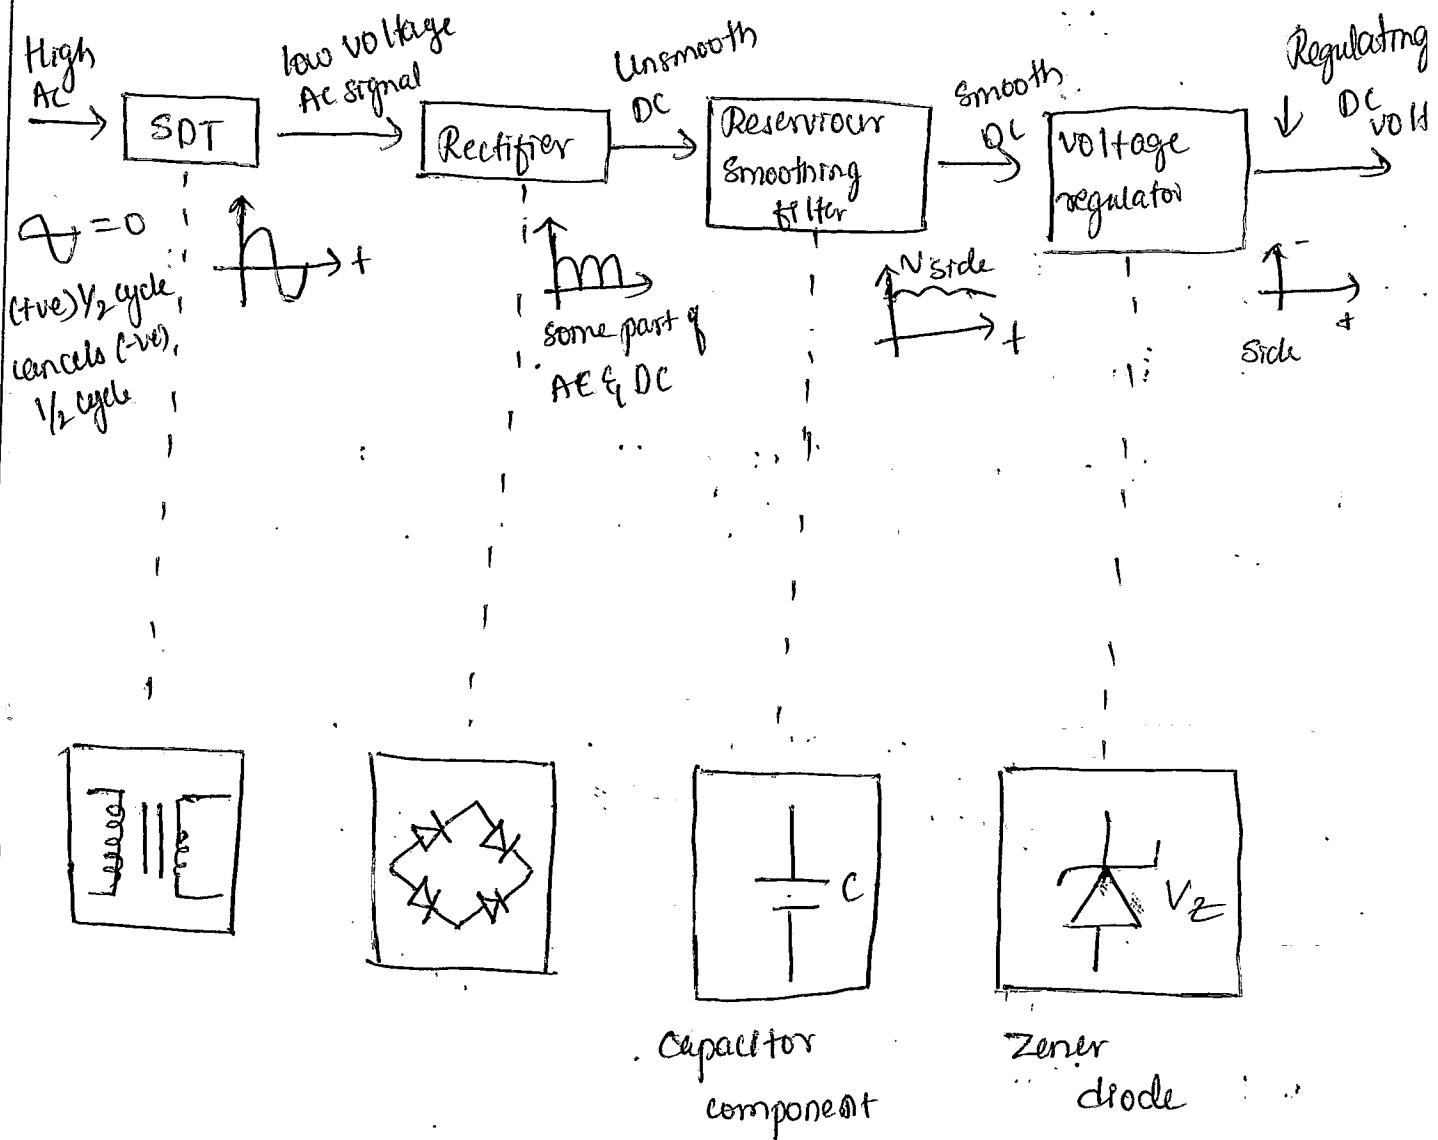 High
AC
SDT
low voltage
AC signal
Rectifier
Unsmooth
DC
Reserviour
Smoothing
filter
Smooth
DC
voltage
regulator
Regulating
DC
volt
= 0
(+ve) 1/2 cycle
cancels (-ve)
1/2 cycle
t
some part of
AC & DC
side
t
t
side
C
Vz
Capacitor
component
Zener
diode